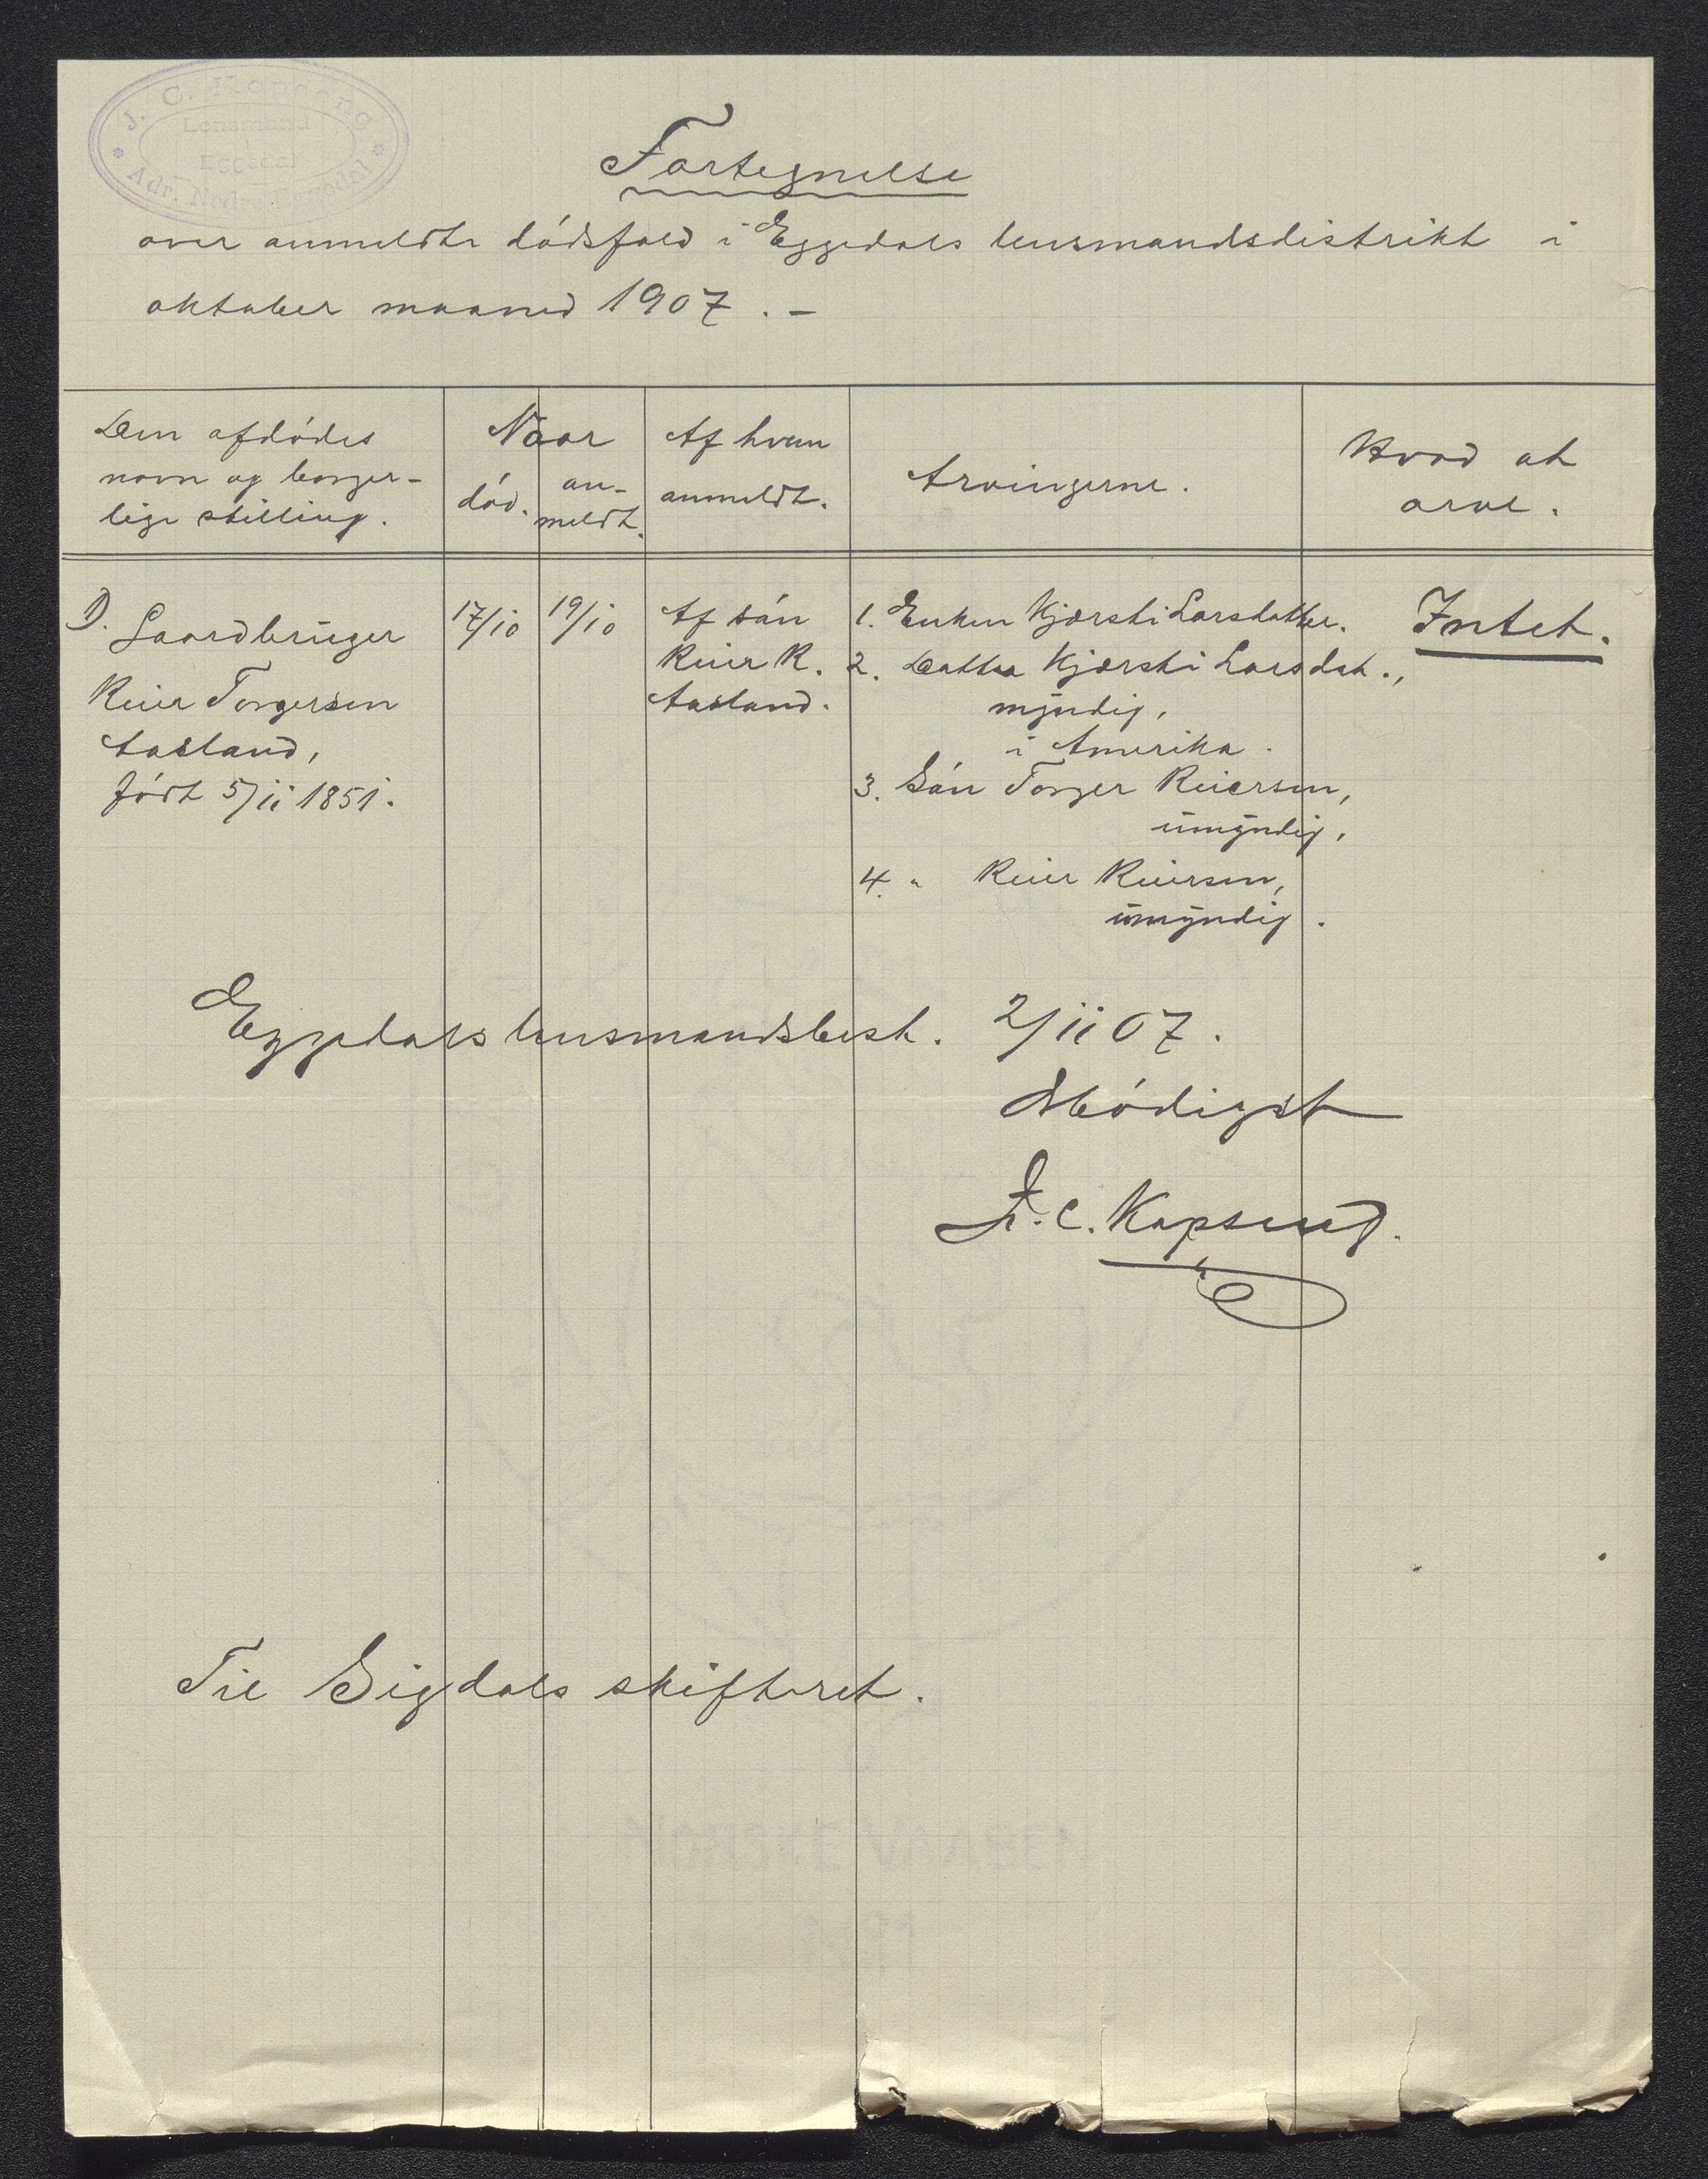 J. C. Kopseng
Lensmand
Eggedal
Adr. Nedre Eggedal
Fortegnelse
over anmeldte dódsfald i Eggedals lensmandsdistrikt i
oktober maaned 1907. -
Den afdódes
navn og borger-
lige stilling.
Naar
dód.
an-
meldt.
Af hvem
anmeldt.
Arvingerne.
Hvad at
arve.
D. Gaardbruger
Reier Torgersen
Aasland,
fódt 5/11 1851.
17/10
19/10
Af són
Reier R.
Aasland.
1. Enken Kjersti Larsdatter.
2. Datter Kjersti Larsdat.,
myndig,
i Amerika.
3. Són Torger Reiersen,
umyndig,
4. " Reier Reiersen,
umyndig.
Intet.
Eggedals lensmandsbest. 2/11 07.
Ærbódigst
J. C. Kopseng.
Til Sigdals skifteret.